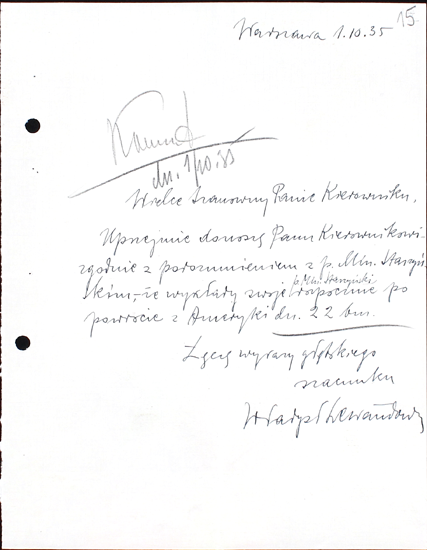 15
Warszawa 1.10.35
dn. 1/10.35
Wielce Szanowny Panie Kierowniku,
Uprzejmie donoszę Panu Kierownikowi
zgodnie z porozumieniem z p. Min. Starzyń-
p. Min. Starzyński
skim, że wykłady swoje rozpocznie po
powrocie z Ameryki dn. 22 bm.
Łączę wyrazy głębokiego
szacunku